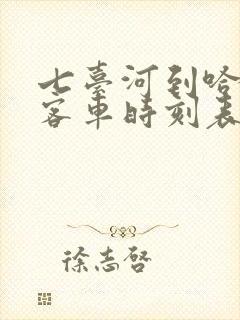 七臺河到哈
客車時刻表
徐志啓